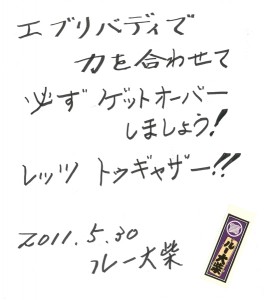 エブリバディで
力を合わせて
必ず ゲットオーバー
しましょう!
レッツ トゥギャザー!!
2011.5.30
ルー大柴
ルー大柴